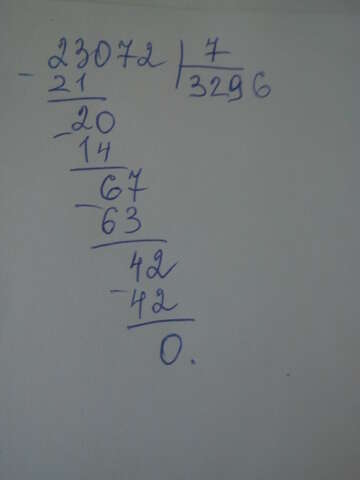 23072 | 7
- 21 | 3296
20
- 14
67
- 63
42
- 42
0.